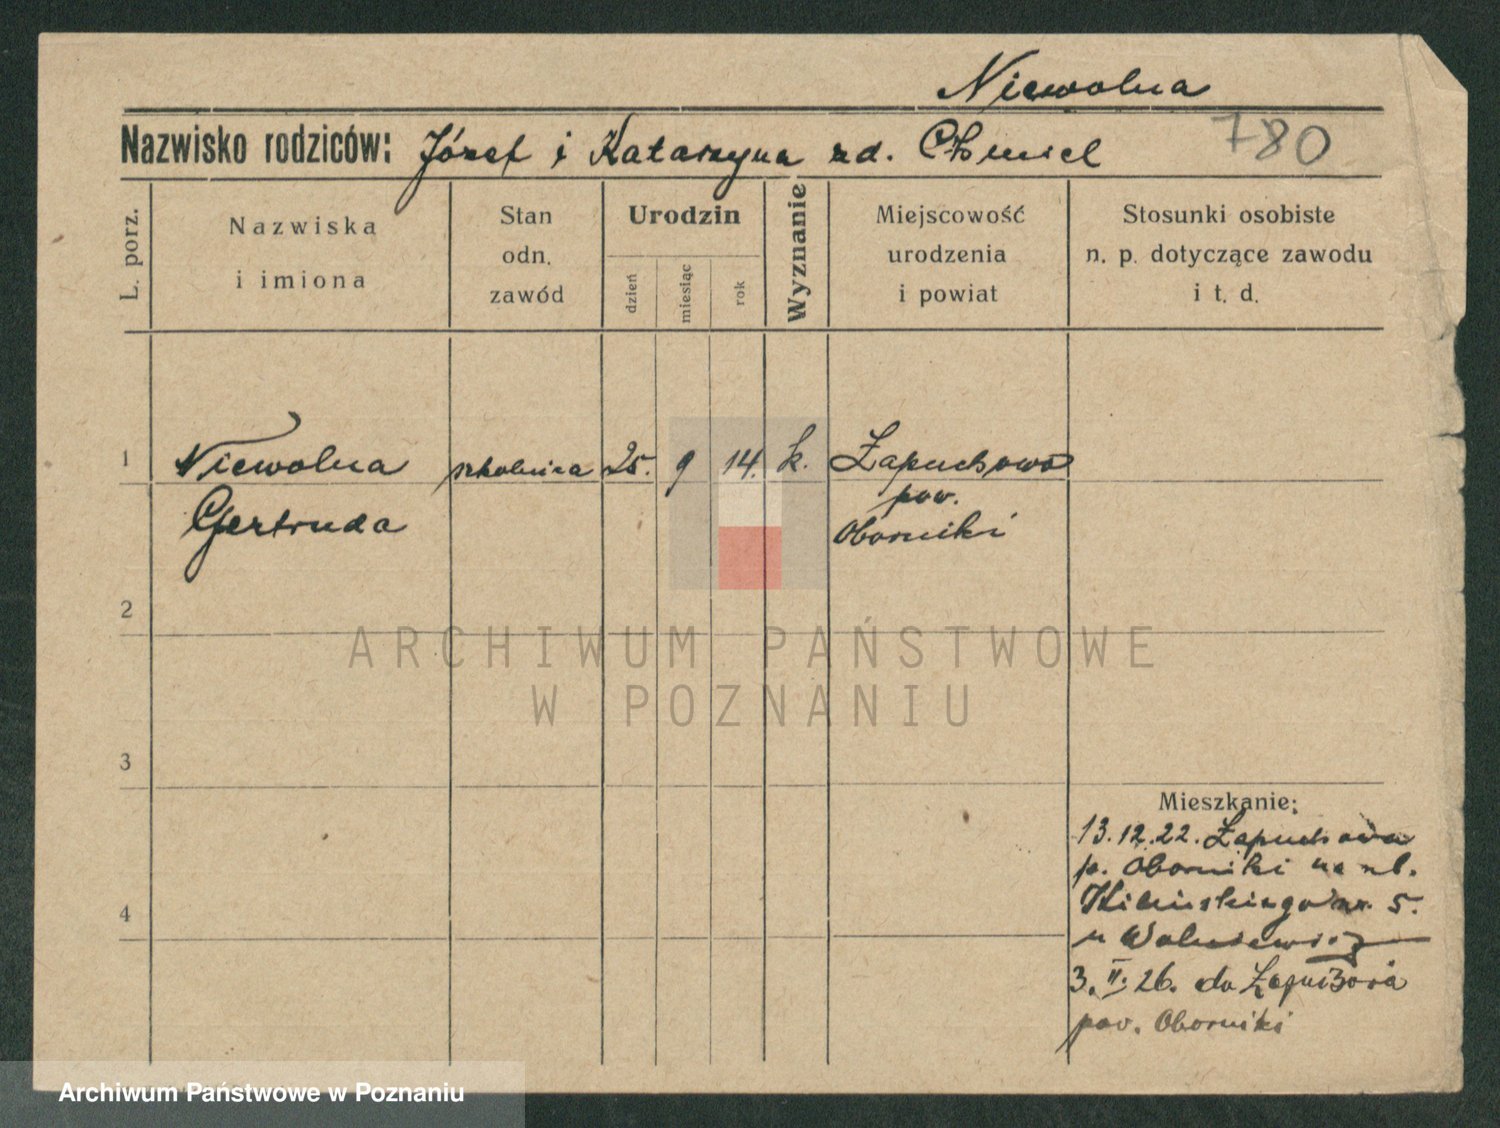 Niewolna
Nazwisko rodziców: Józef i Katarzyna zd. Chmiel
780
L. porz.
Nazwiska
i imiona
Stan
odn.
zawód
Urodzin
dzień
miesiąc
rok
Wyznanie
Miejscowość
urodzenia
i powiat
Stosunki osobiste
n. p. dotyczące zawodu
i t. d.
1 Niewolna szkolnica 25. 9 14. k. Łapuchowo
pow.
Gertruda Oborniki
2
3
Mieszkanie:
13.12.22. Łapuchowa
p. Oborniki na ul.
4
Kilińskiego nr. 5.
u Woluiewicz
3. II. 26. do
pow. Oborniki
ARCHIWUM PAŃSTWOWE
W POZNANIU
Archiwum Państwowe w Poznaniu